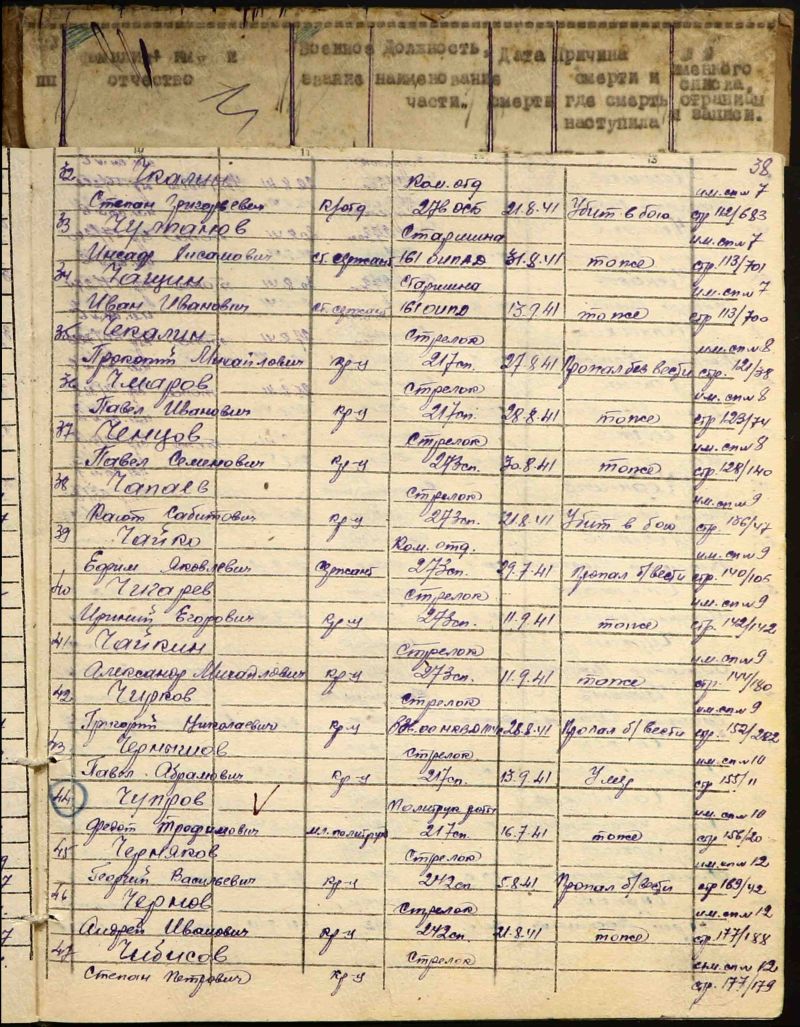 пп отчество
Военное звание
Должность, наименование части.
Дата смерти
Причина смерти и где смерть наступила
именного списка, страницы и записи.
38
32 Чкалин Ком. отд им. сп. 7
Степан Григорьевич 21.8.41 Убит в бою стр 112/683
33 Чулпанов Старшина им. сп. 7
ст. сержант 31.8.41 то же стр. 113/701
34 Чащин Старшина им. сп. 7
Иван Иванович ст. сержант 13.9.41 то же стр. 113/700
35 Чекалин Стрелок им. сп. 8
Прокопий Михайлович кр-ц 217 сп. 27.8.41 Пропал без вести стр. 121/38
36 Чмаров Стрелок им. сп. 8
Павел Иванович кр-ц 217 сп. 28.8.41 то же стр 123/74
37 Ченцов Стрелок им. сп. 8
Павел Семенович кр-ц 273 сп. 30.8.41 то же стр. 128/140
38 Чапаев Стрелок им. сп. 9
Сабитович кр-ц 273 сп. 21.8.41 Убит в бою стр.
39 Чайко Ком. отд. им. сп. 9
Ефрим Яковлевич сержант 273 сп. 29.7.41 Пропал б/вести стр.
40 Чигарев Стрелок им. сп. 9
Егорович кр-ц 273 сп. 11.9.41 то же стр. 142/142
41 Чайкин Стрелок им. сп. 9
Александр Михайлович кр-ц 273 сп. 11.9.41 то же стр.
42 Чирков Стрелок им. сп. 9
Григорий Николаевич кр-ц 28.8.41 Пропал б/вести стр.
43 Чернышов Стрелок им. сп. 10
Павел Абрамович кр-ц 217 сп. 13.9.41 Умер стр 155/11
44 Чупров Политрук роты им. сп. 10
Федот Трофимович мл. политрук 217 сп. 16.7.41 то же стр 156/20
45 Черняков Стрелок им. сп. 12
Георгий Васильевич кр-ц 242 сп 5.8.41 Пропал б/вести стр 169/42
46 Чернов Стрелок им. сп. 12
Андрей Иванович кр-ц 242 сп. 21.8.41 то же стр. 177/188
47 Чибисов Стрелок им. сп. 12
Степан Петрович кр-ц стр. 177/179